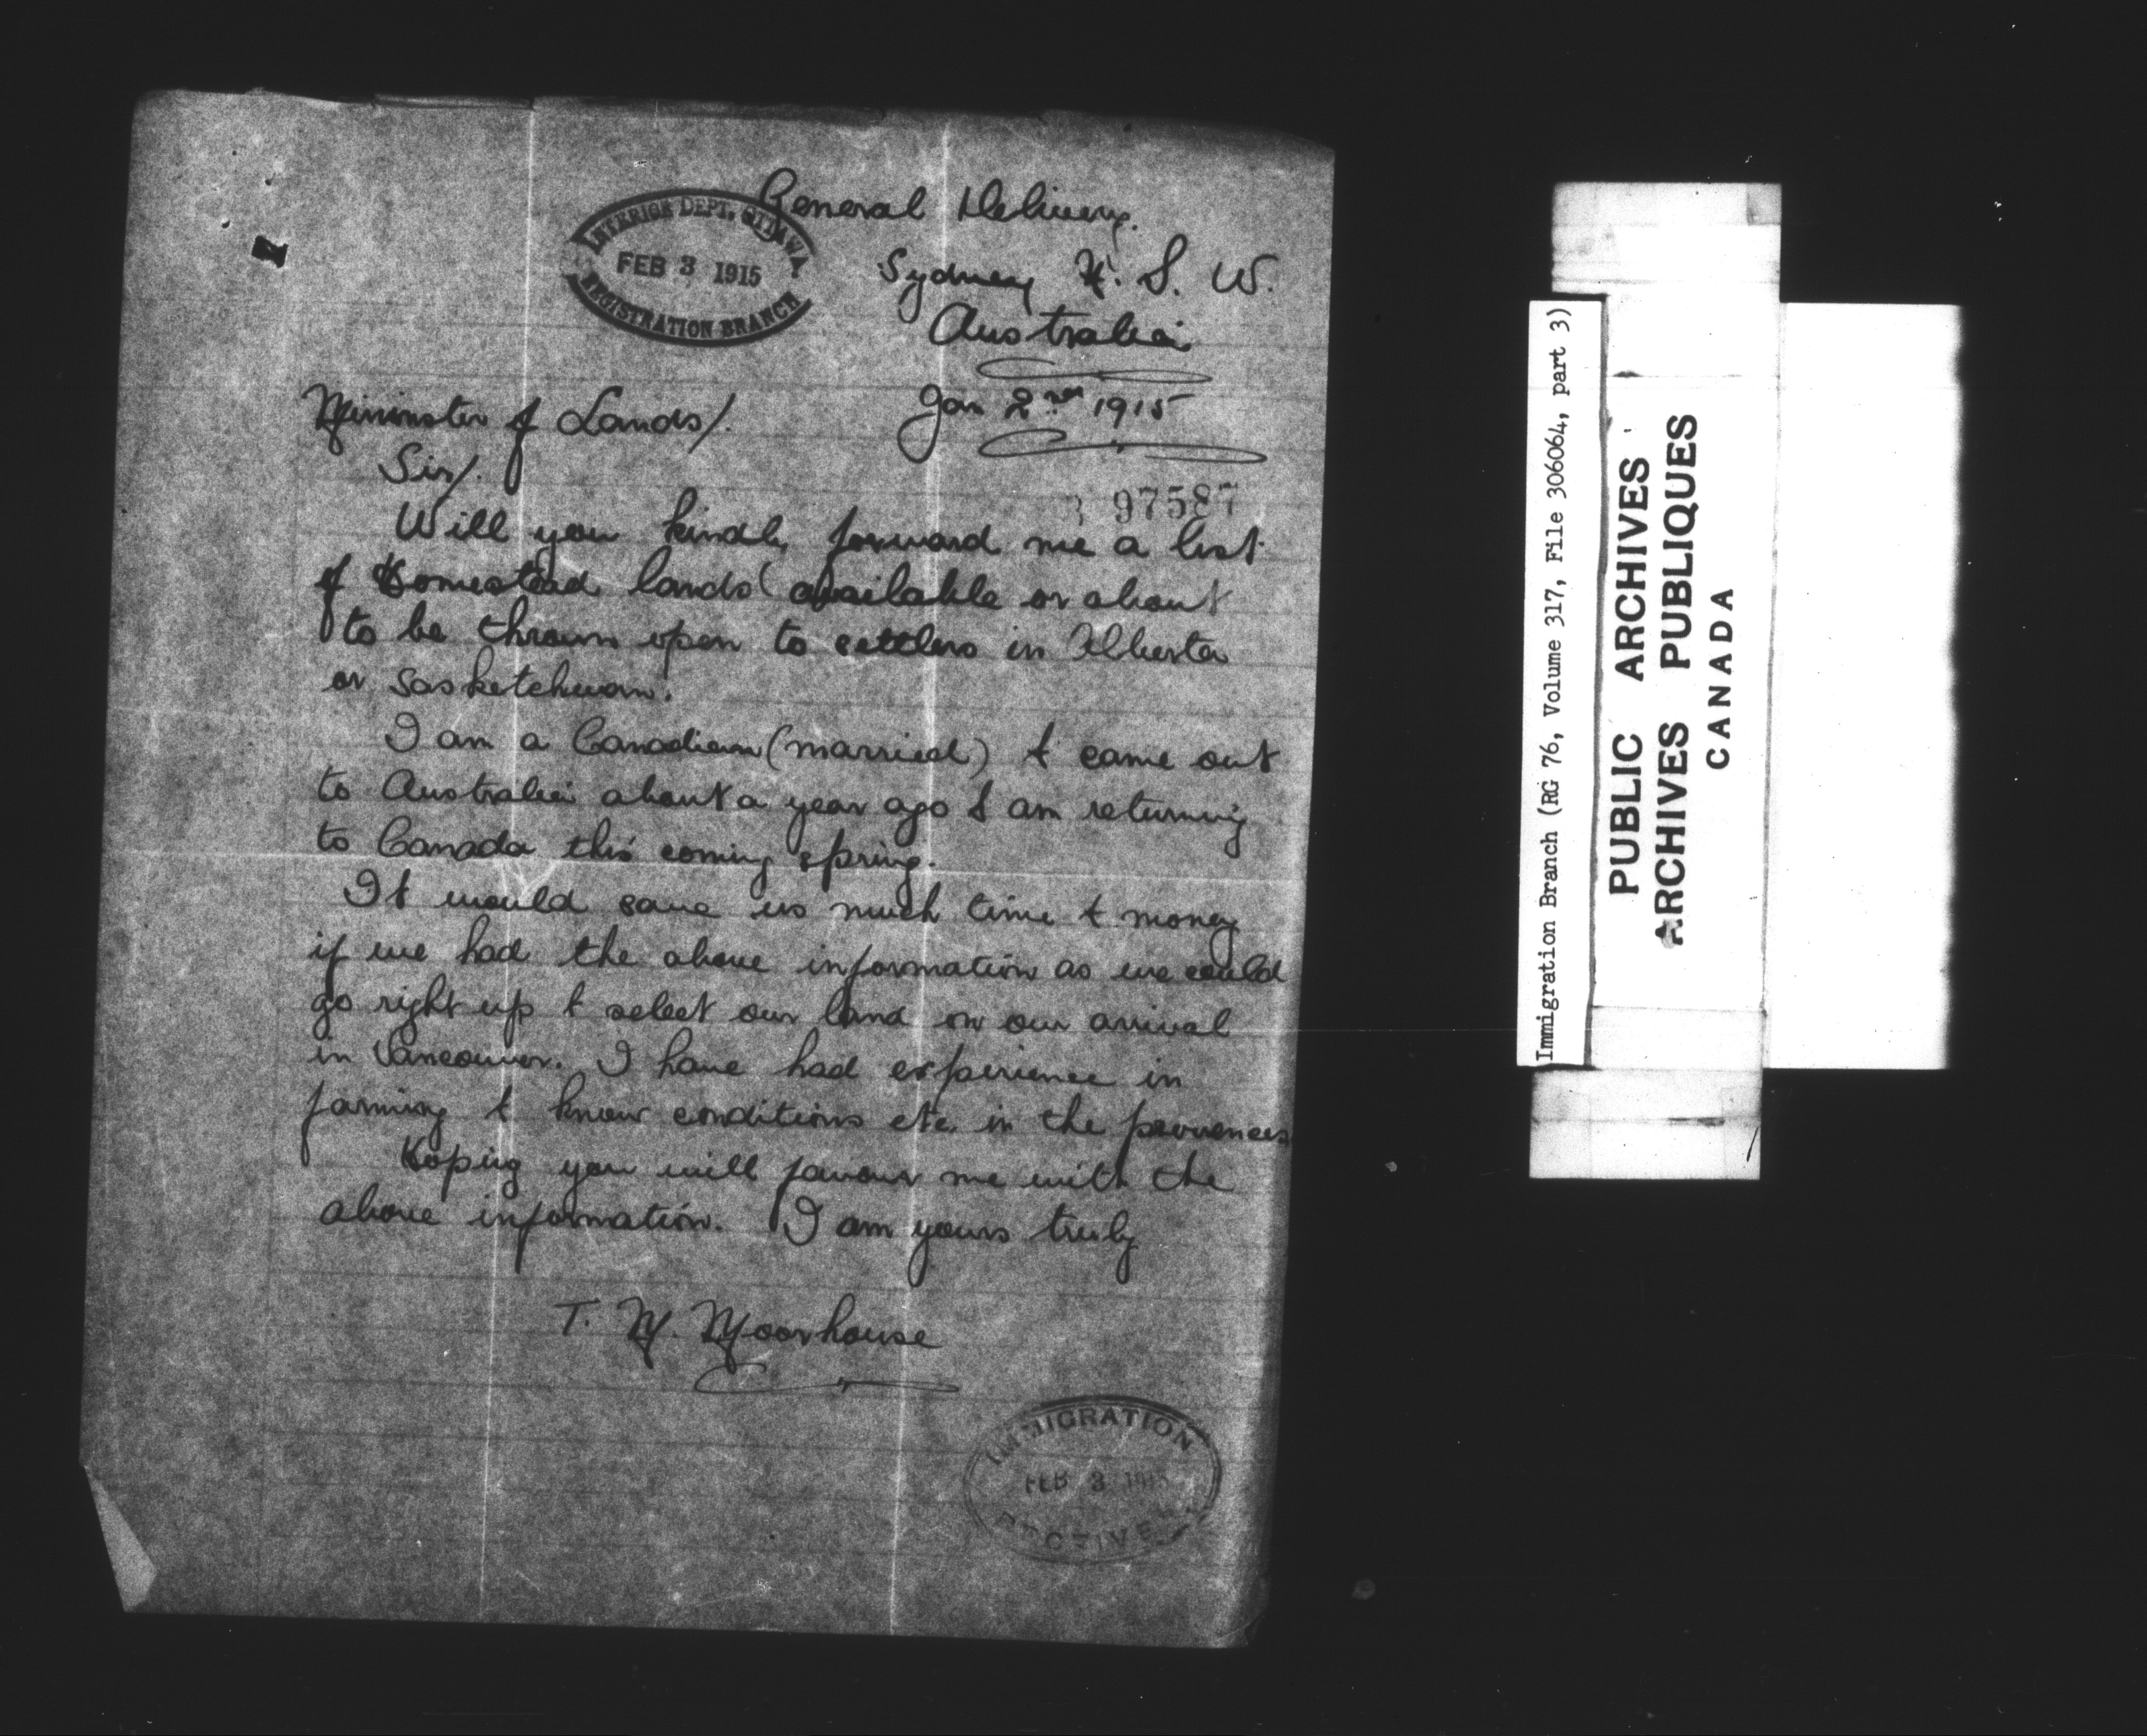 General Delivery.
INTERIOR DEPT. OTTAWA
FEB 3 1915
REGISTRATION BRANCH
Sydney N. S. W.
Australia
Jan 2nd 1915
Mininster of Lands/.
Sir/.
97587
Will you kindly forward me a list
of Homestead lands available or about
to be thrown open to settlers in Alberta
or Sasketchwan.
I am a Canadian (married) & came out
to Australia about a year ago & am returning
to Canada this coming spring.
It would save us much time & money
if we had the above information as we could
go right up & select our land on our arrival
in Vancouver. I have had experience in
farming & know conditions etc. in the
Hoping you will favour me with the
above information. I am yours truly
T. M. Moorhouse
IMMIGRATION
FEB 3 1915
Immigration Branch (RG 76, Volume 317, File 306064, part 3)
PUBLIC ARCHIVES
ARCHIVES PUBLIQUES
CANADA